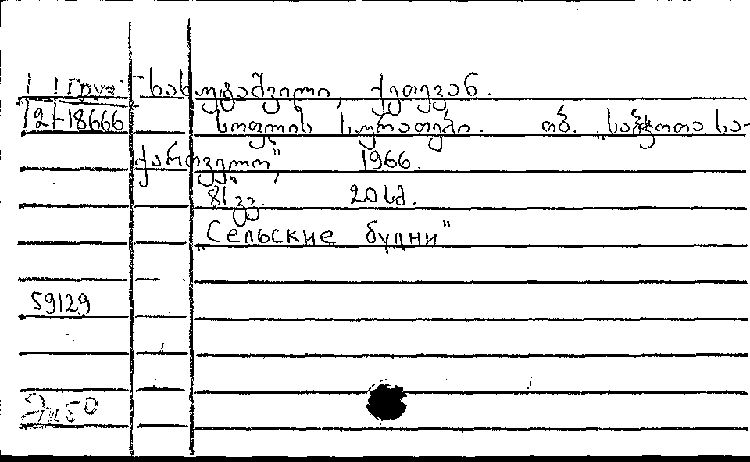 Груз ხახუტაშვილი, ქეთევან.
12-18666 სოფლის სურათები. თბ. „საბჭოთა სა-
ქართველო", 1966.
81 გვ. 20 სმ.
„Сельские будни"
59129